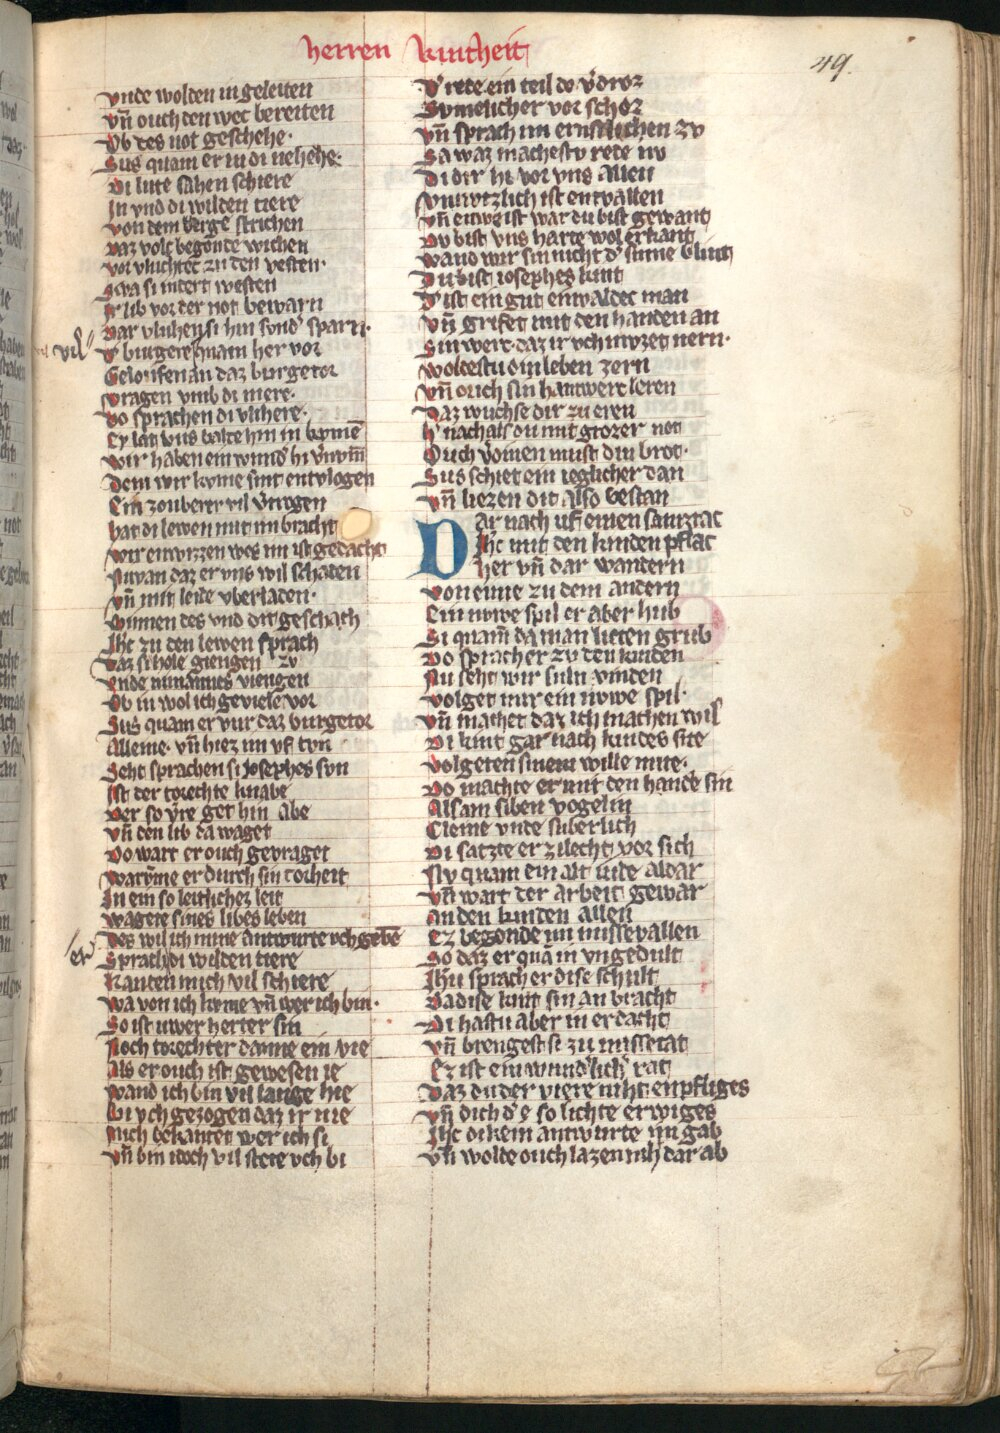 herren kintheit
49.
vnde wolden in geleiten
vñ ouch den wec bereiten
Ob des not geschehe·
Sus quam er in di nehehe·
Di lute sahen schiere
In vnd di wilden tiere
von dem berge strichen
Daz volc begonde wichen
vor vluchtec zu den vesten·
Swa si indert westen
Ir lib vor der not bewarn
Dar vluhen si hin sund' sparn·
vil
D' burgere quam her vor
Geloufen an daz burgetor
vragen vmb di mere·
Do sprachen di vluhere·
Ey lat vns balde hin in kvmē
wir haben ein wund' hi v'nvm̄
Dem wir kvme sint entvlogen
Ein zouberer vil vngezogen
hat di lewen mit im bracht
wir enwizzen wes im ist gedacht
Niwan daz er vns wil schaden
vñ mit leide vberladen·
Binnen des vnd dit geschach
Jhc zu den lewen sprach
Daz si hole giengen zv
vnde nimannes viengen
Ob in wol ich geviele vor
Sus quam er vur daz burgetor
Alleine· vñ hiez im vf tvn
Seht sprachen si Josephes svn
Ist der torechte knabe
Der so vre get hin abe
vñ den lib da waget
Do wart er ouch gevraget
warvme er durch sin torheit
In ein so leitlichez leit
wagete sines libes leben
Des wil ich mine antwurte vch gebē
er
Sprach di wilden tiere
Kanten mich vil schiere
wa von ich kvme vñ wer ich bin·
So ist uwer herter sin
Noch torechter danne ein vie
Als er ouch ist gewesen ie
wand ich bin vil lange hie
Bi vch gezogen daz ir nie
Mich bekantet wer ich si
vñ bin idoch vil stete vch bi
D' rede ein teil do v'droz
Svmelicher vor schoz
vñ sprach im ernstlichen zv
Sa waz machestv rede nv
Di dir hi vor vns allen
vnnvtzlich ist entvallen
vñ enweist war du bist gewant
Dv bist vns harte wol erkant
wand wir sin nicht d' sinne blint
Du bist iosephes kint
D' ist ein gut einvaldec man
vñ grifet mit den handen an
Sin werc· daz ir vch mvzet nern·
woldestu din leben zern
vñ ouch sin hantwerc leren
Daz wuchse dir zu eren
hi nach als du mit grozer not
Ouch v'dinen must din brot·
Sus schiet ein ieglicher dan
vñ liezen dit also bestan
Dar nach uf einen samztac
Jhc mit den kinden pflac
her vñ dar wandern
von eime zu dem andern
Ein nvwe spil er aber hub
Si quam̄ da man lieten grub
Do sprach er zv den kinden
Nu seht wir suln vinden
volget mir ein nvwe spil·
vñ machet daz ich machen wil
Di kint gar nach kindes site
volgeten sinem wille mite·
Do machte er mit den hande sin
Alsam siben vogelin
Cleine vnde suberlich
Di satzte er zilecht vor sich
Nv quam ein alt iude aldar
vñ wart der arbeit gewar
an den kinden allen
Ez begonde im missevallen
So daz er quā in vngedult
Jhu sprach er dise schult
Da dise kint sin an bracht
Di hastu aber in erdacht
vñ brengest si zu missetat
Ez ist ein wund'lich' rat
Daz du der viere niht enpfliges
vñ dich d' e so lichte erwiges
Jhc dikein antwurte im gab
vñ wolde ouch lazen niht dar ab